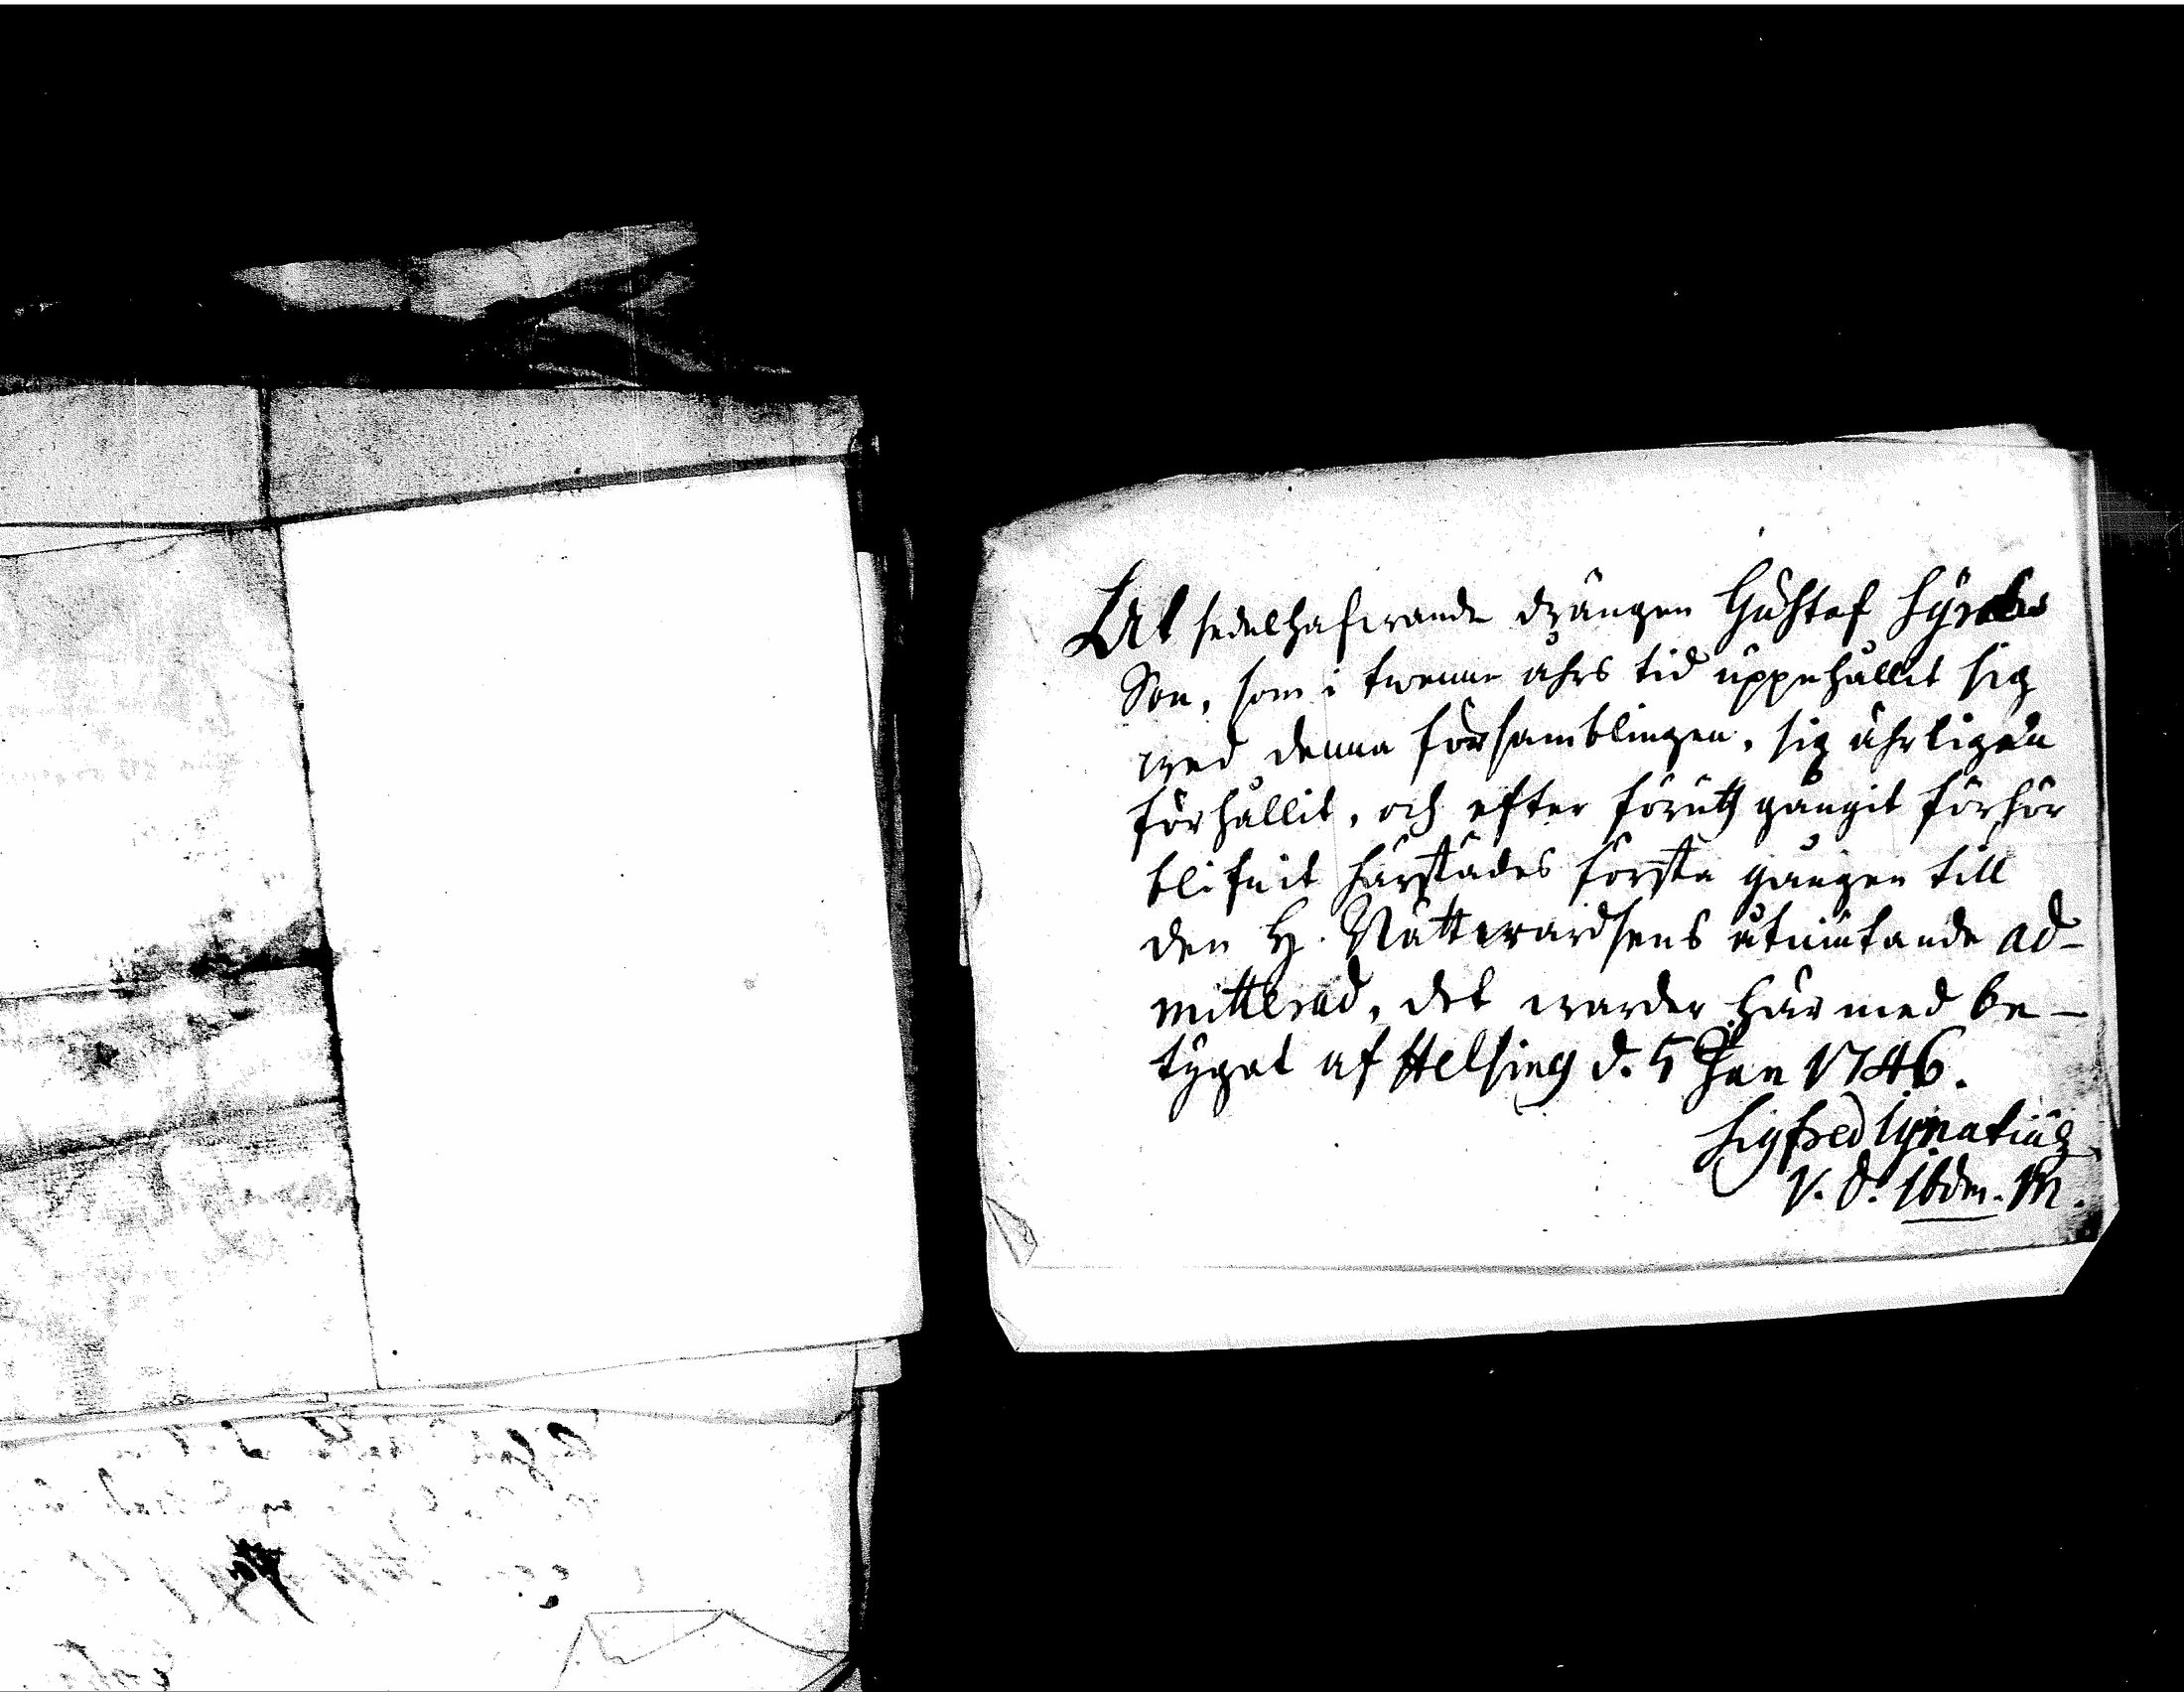 At sedelhafwande drängen Gustaf
Son, som i twenne åhrs tid uppehållit sig
wed denna församblingen, sig ährligen
förhållit, och efter föruth gångit förhör
blifwit härstädes första gången till
den H. Nattwardsens åtniutande ad-
mitterad, det warder här med be-
tygat af Helsing d. 5 Jan 1746.
Sigfred Ignatius
V. d. Ibdm. M.